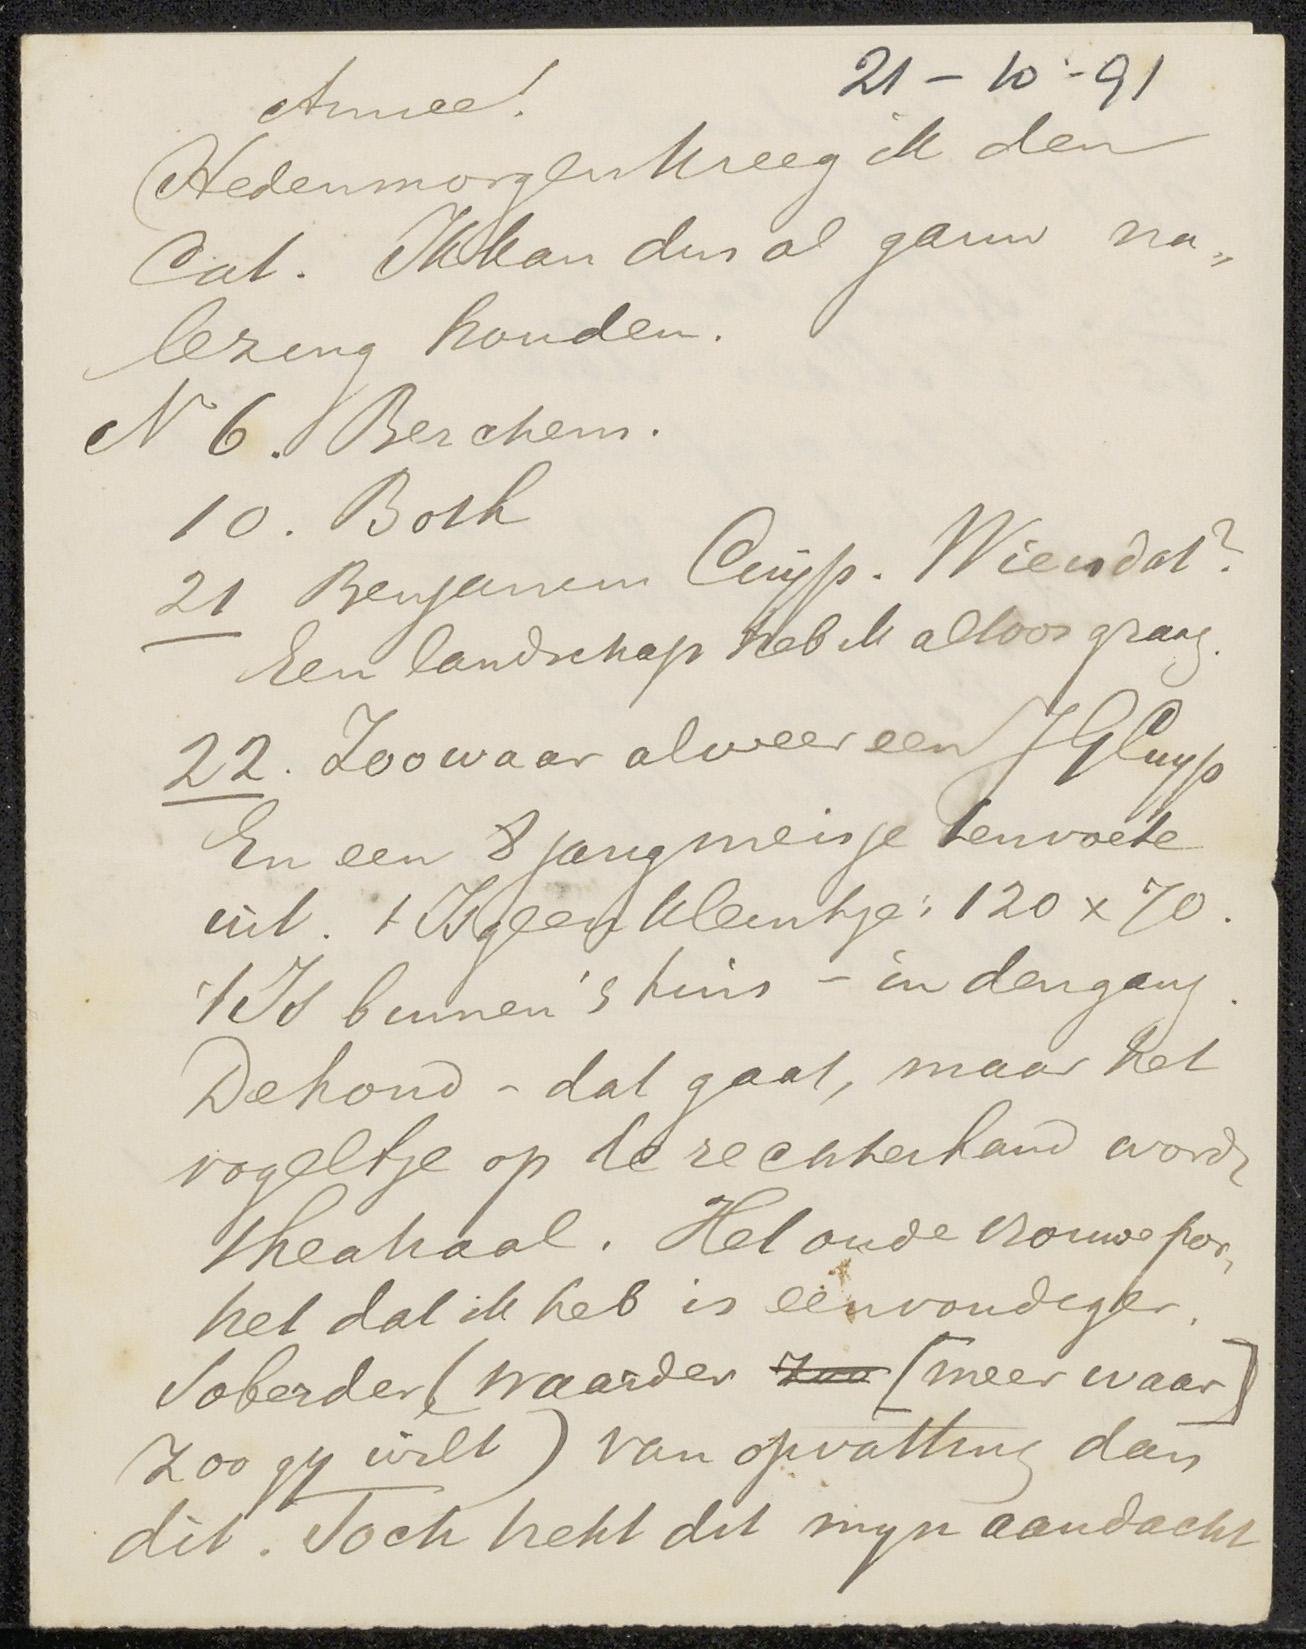 21 - 10 - 91
Amice!
Hedenmorgen kreeg ik den
Cat. Ik kan dus al gauw na„
lezing houden.
N 6. Berchem.
10. Both
21 Benjamin Cuijp. Wie is dat?
Een landschap heb ik altoos graag.
22. Zoowaar alweer een J G Cuyp
En een 8 jarig meisje tenvoete
uit. 't Is geen kleintje: 120 x 70.
't Is binnen 's huis - in den gang.
De hond - dat gaat, maar het
vogeltje op de rechterhand wordt
theatraal. Het oude vrouwepor„
tret dat ik heb is eenvoudiger.
Soberder ( waarder zoo [meer waar]
zoo gy wilt ) van opvatting dan
dit. Toch trekt dit myn aandacht